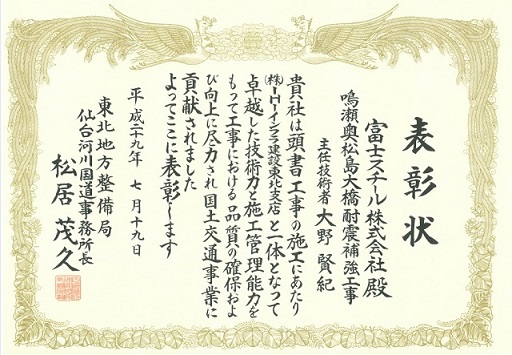 表彰状
富士スチール株式会社殿
鳴瀬奥松島大橋耐震補強工事
主任技術者 大野 賢紀
貴社は頭書工事の施工にあたり
㈱IHIインフラ建設東北支店と一体となって
卓越した技術力と施工管理能力を
もって工事における品質の確保およ
び向上に尽力され国土交通事業に
貢献されました
よってここに表彰します
平成二十九年 七月十九日
東北地方整備局
仙台河川国道事務所長
松居 茂久